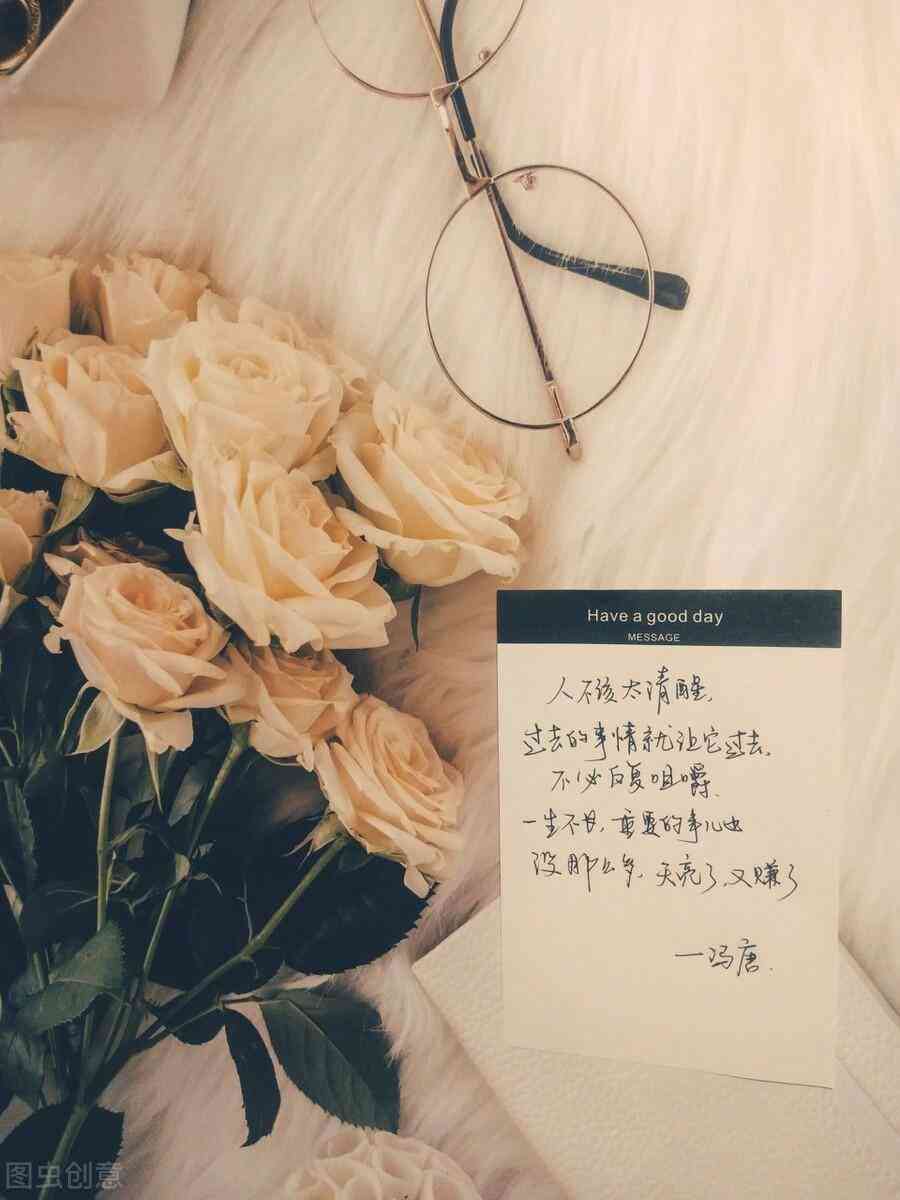 Have a good day
MESSAGE
人不该太清醒,
过去的事情就让它过去,
不必反复咀嚼.
一生不长, 重要的事儿也
没那么多, 天亮了,又赚了
—冯唐.
图虫创意